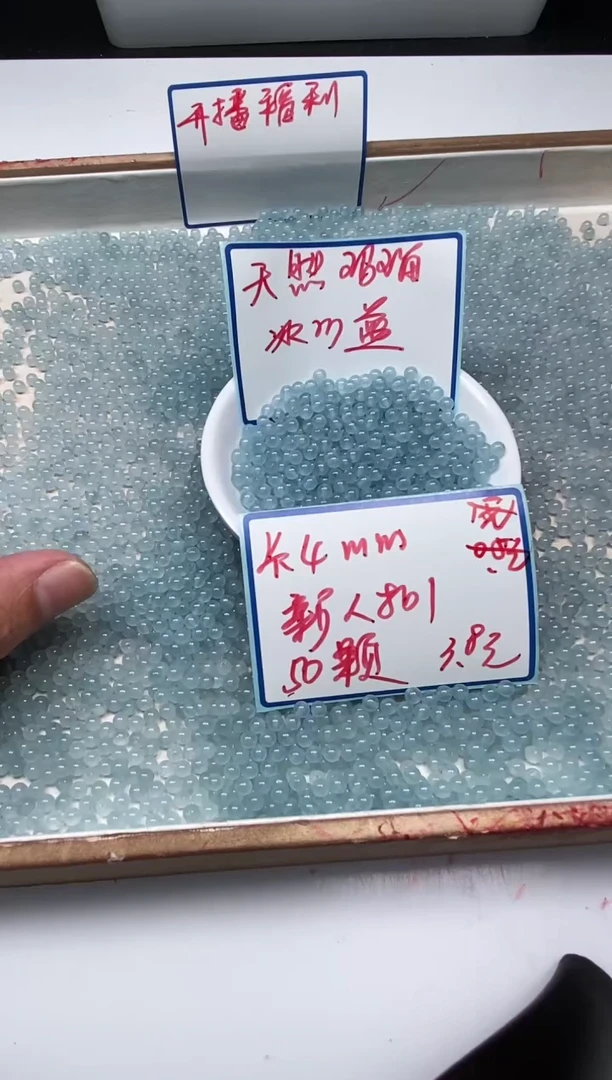 开播福利
天然玛瑙
冰川蓝
长4mm
新人801
50颗 3.8元